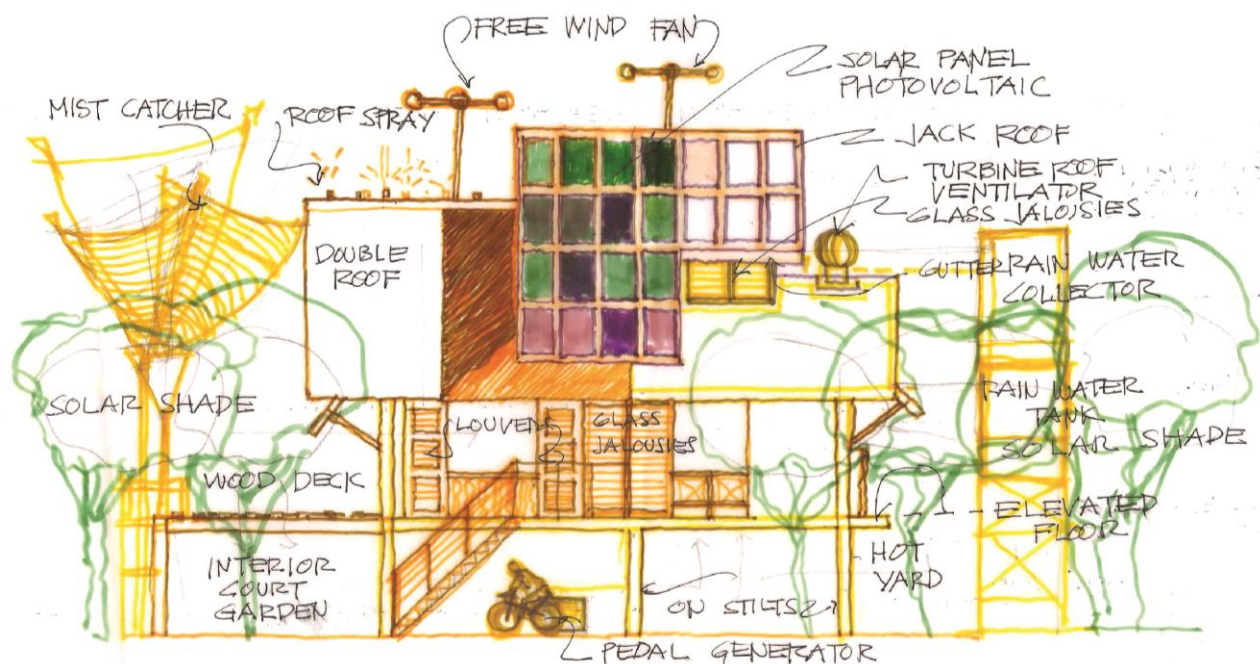 FREE WIND FAN
SOLAR PANEL
PHOTOVOLTAIC
MIST CATCHER
ROOF SPRAY
JACK ROOF
TURBINE ROOF
VENTILATOR
GLASS JALOUSIES
DOUBLE
ROOF
GUTTER
RAIN WATER
COLLECTOR
SOLAR SHADE
RAIN WATER
TANK
SOLAR SHADE
LOUVER
GLASS
JALOUSIES
WOOD DECK
ELEVATED
FLOOR
INTERIOR
COURT
GARDEN
HOT
YARD
ON STILTS
PEDAL GENERATOR